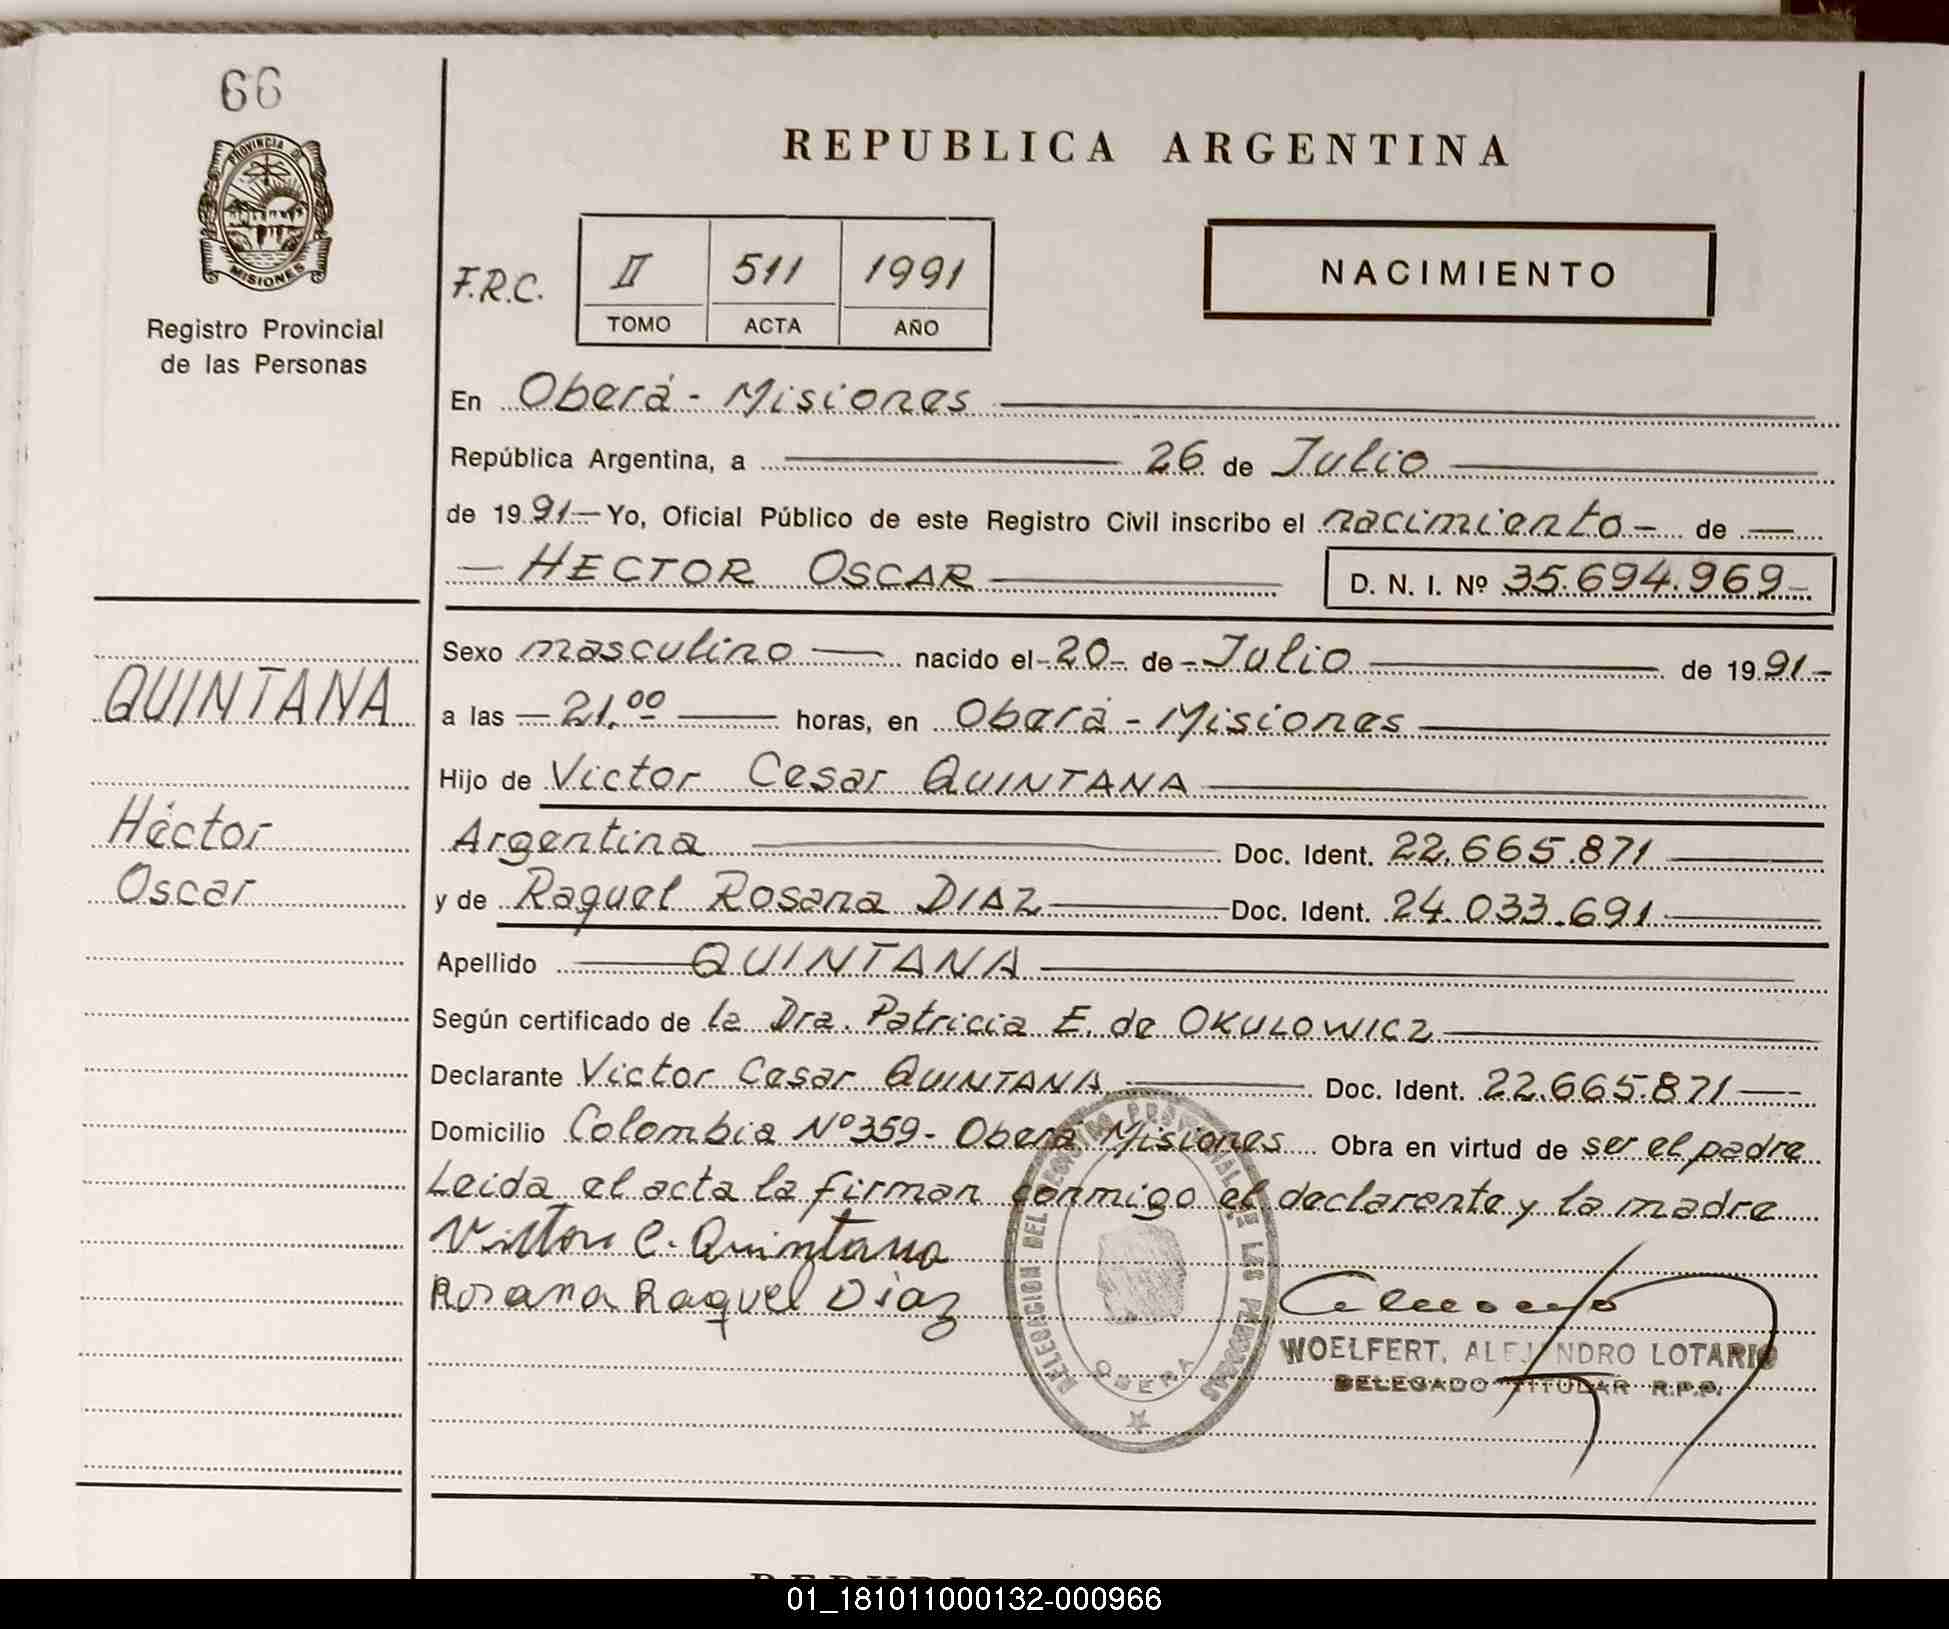 66
PROVINCIA DE
MISIONES
Registro Provincial
de las Personas
QUINTANA
Héctor
Oscar
REPUBLICA ARGENTINA
F.R.C.
II 511 1991
TOMO ACTA AÑO
NACIMIENTO
En Oberá - Misiones
República Argentina, a 26 de Julio
de 1991 Yo, Oficial Público de este Registro Civil inscribo el nacimiento de
HECTOR OSCAR D. N. I. Nº 35.694.969
Sexo masculino nacido el 20 de Julio de 1991
a las 21,00 horas, en Oberá - Misiones
Hijo de Victor Cesar QUINTANA
Argentina Doc. Ident. 22.665.871
y de Raquel Rosana DIAZ Doc. Ident. 24.033.691
Apellido QUINTANA
Según certificado de la Dra. Patricia E. de OKULOWICZ
Declarante Victor Cesar QUINTANA Doc. Ident. 22.665.871
Domicilio Colombia Nº 359 - Oberá Misiones Obra en virtud de ser el padre
Leida el acta la firman conmigo el declarante y la madre
Victor C. Quintana
Rosana Raquel Diaz
DELEGACION DEL REGISTRO PROVINCIAL DE LAS PERSONAS
OBERA
WOELFERT, ALEJANDRO LOTARIO
DELEGADO TITULAR R.P.P.
01_181011000132-000966